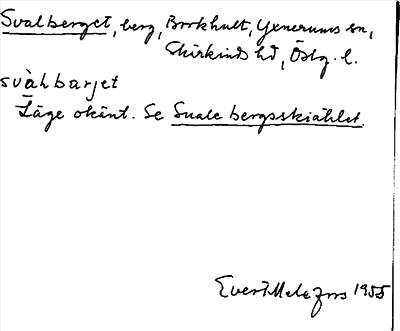 Svalberget, berg, Borkhult, Yxnerums sn,
Skärkinds hd, Östg. l.
svàlbarjet
Läge okänt. Se Suale bergsskiählet.
Evert Melefors 1955